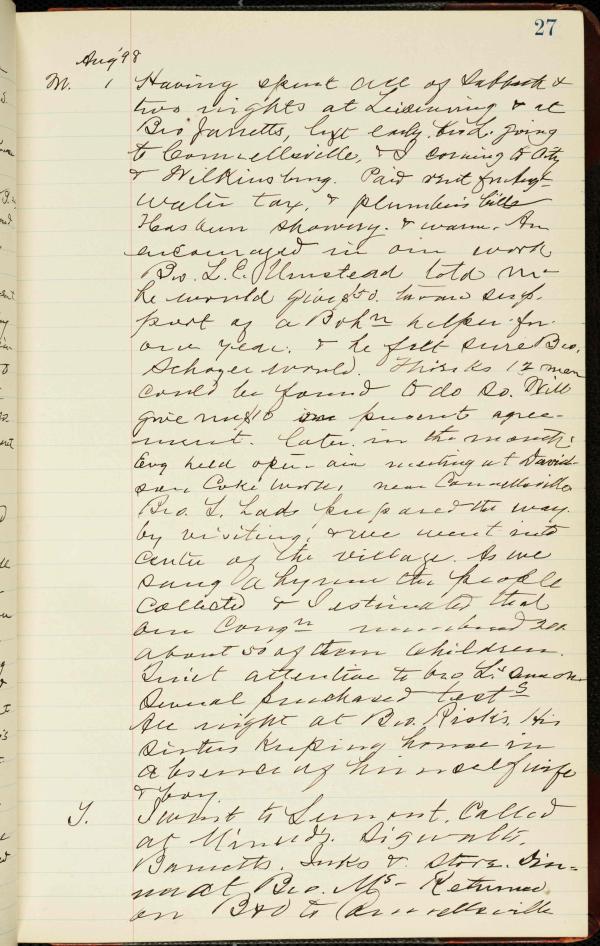 27
Aug '98
M. 1 Having spent all of Sabbath &
two nights at Leisenring & at
Bro Jarretts, left early. Bro L. going
to Connellsville, & I coming to City
& Wilkinsburg. Paid rent freight
water tax, & plumber's bills
Has been showery & warm. Am
encouraged in our work
Bro. L. E. Umstead told me
he would give $50. toward sup-
port of a Boh'n helper for
one year. & he felt sure Bro.
Schoyer would. Thinks 12 men
could be found to do so. Will
give me $10 on present agree-
ment. later in the month.
Evg held open air meeting at David-
son Coke Works, near Connellsville
Bro. L. had prepared the way
by visiting, & we went into
centre of the village. As we
sang a hymn the people
collected & I estimated that
our Cong'n numbered 200
about 50 of them children.
Quiet attention to bro L's sermon
Several purchased test's
All night at Bro. Risk's. His
sisters keeping house in
absence of himself wife
& boy
T. I went to Lemont. Called
at
Barnetts. Inks & store. Din-
ner at Bro. M's - Returned
on B&O to Connellsville